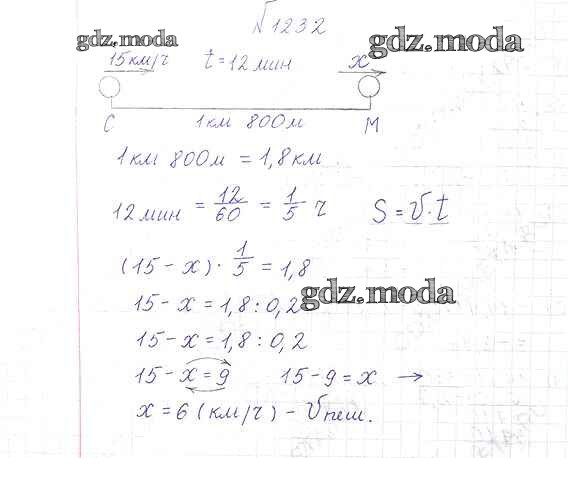 √1232
gdz.moda gdz.moda
15км/ч t=12мин x
С 1км 800м М
1км 800м = 1,8км
12мин = 12/60 = 1/5 ч S = v·t
(15 - x) · 1/5 = 1,8
15 - x = 1,8 : 0,2
gdz.moda
15 - x = 1,8 : 0,2
15 - x = 9 15 - 9 = x →
x = 6 (км/ч) - v пеш.